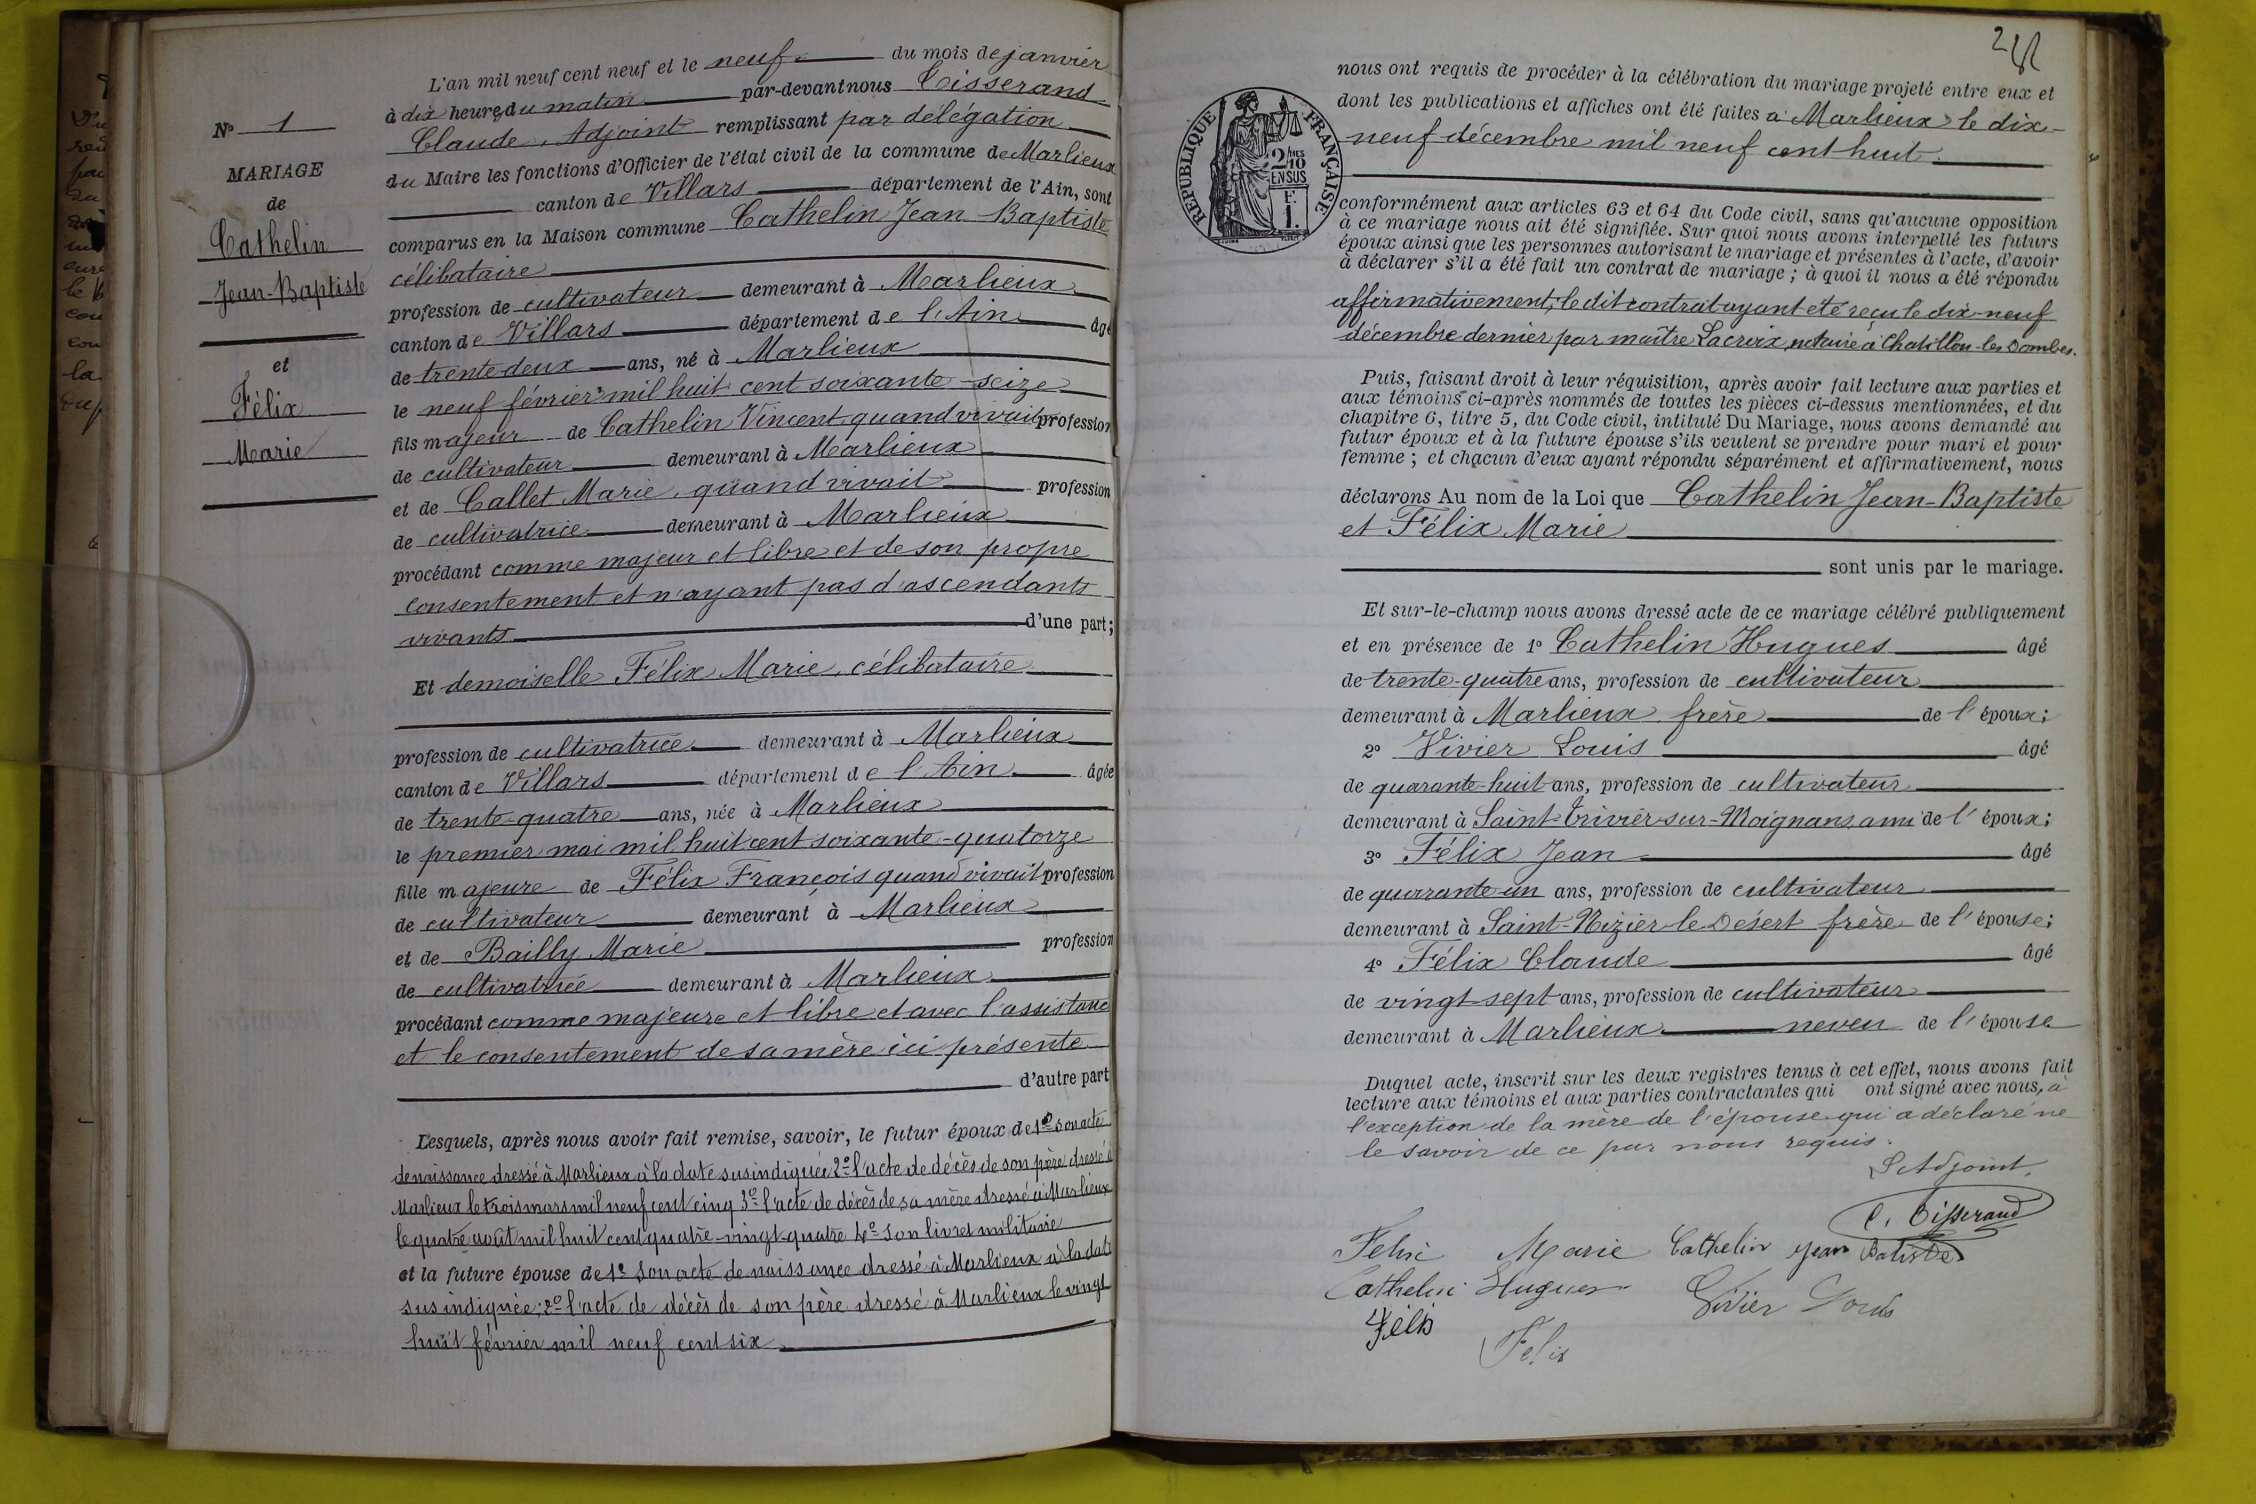 N° 1
MARIAGE
de
Cathelin
Jean-Baptiste
et
Félix
Marie
L'an mil neuf cent neuf et le neuf du mois de janvier
à dix heures du matin par-devant nous Tisserand
Claude, Adjoint remplissant par délégation
du Maire les fonctions d'Officier de l'état civil de la commune de Marlieux
canton de Villars département de l'Ain, sont
comparus en la Maison commune Cathelin Jean-Baptiste
célibataire
profession de cultivateur demeurant à Marlieux
canton de Villars département de l'Ain âgé
de trente-deux ans, né à Marlieux
le neuf février mil huit cent soixante-seize
fils majeur de Cathelin Vincent quand vivait profession
de cultivateur demeurant à Marlieux
et de Callet Marie, quand vivait profession
de cultivatrice demeurant à Marlieux
procédant comme majeur et libre et de son propre
consentement et n'ayant pas d'ascendants
vivants d'une part;
Et demoiselle Félix Marie, célibataire
profession de cultivatrice demeurant à Marlieux
canton de Villars département de l'Ain âgée
de trente-quatre ans, née à Marlieux
le premier mai mil huit cent soixante-quatorze
fille majeure de Félix François quand vivait profession
de cultivateur demeurant à Marlieux
et de Bailly Marie profession
de cultivatrice demeurant à Marlieux
procédant comme majeure et libre et avec l'assistance
et le consentement de sa mère ici présente
d'autre part
Lesquels, après nous avoir fait remise, savoir, le futur époux de 1° son acte
de naissance dressé à Marlieux à la date susindiquée 2° l'acte de décès de son père dressé à
Marlieux le trois mars mil neuf cent cinq 3° l'acte de décès de sa mère dressé à Marlieux
le quatre août mil huit cent quatre-vingt-quatre 4° son livret militaire
et la future épouse de 1° son acte de naissance dressé à Marlieux à la date
susindiquée; 2° l'acte de décès de son père dressé à Marlieux le vingt
huit février mil neuf cent six
nous ont requis de procéder à la célébration du mariage projeté entre eux et
dont les publications et affiches ont été faites à Marlieux le dix-
neuf décembre mil neuf cent huit.
REPUBLIQUE FRANÇAISE
2/10
EN SUS
1F.
conformément aux articles 63 et 64 du Code civil, sans qu'aucune opposition
à ce mariage nous ait été signifiée. Sur quoi nous avons interpellé les futurs
époux ainsi que les personnes autorisant le mariage et présentes à l'acte, d'avoir
à déclarer s'il a été fait un contrat de mariage; à quoi il nous a été répondu
affirmativement; le dit contrat ayant été reçu le dix-neuf
décembre dernier par maître Lacroix, notaire à Chatillon-les-Dombes.
Puis, faisant droit à leur réquisition, après avoir fait lecture aux parties et
aux témoins ci-après nommés de toutes les pièces ci-dessus mentionnées, et du
chapitre 6, titre 5, du Code civil, intitulé Du Mariage, nous avons demandé au
futur époux et à la future épouse s'ils veulent se prendre pour mari et pour
femme; et chacun d'eux ayant répondu séparément et affirmativement, nous
déclarons Au nom de la Loi que Cathelin Jean-Baptiste
et Félix Marie
sont unis par le mariage.
Et sur-le-champ nous avons dressé acte de ce mariage célébré publiquement
et en présence de 1° Cathelin Hugues âgé
de trente-quatre ans, profession de cultivateur
demeurant à Marlieux frère de l'époux;
2° Vivier Louis âgé
de quarante-huit ans, profession de cultivateur
demeurant à Saint-Trivier-sur-Moignans ami de l'époux;
3° Félix Jean âgé
de quarante-un ans, profession de cultivateur
demeurant à Saint-Nizier-le-Désert frère de l'épouse;
4° Félix Claude âgé
de vingt-sept ans, profession de cultivateur
demeurant à Marlieux neveu de l'épouse
Duquel acte, inscrit sur les deux registres tenus à cet effet, nous avons fait
lecture aux témoins et aux parties contractantes qui ont signé avec nous, à
l'exception de la mère de l'épouse qui a déclaré ne
le savoir de ce par nous requis.
L'Adjoint,
C. Tisserand
Felix Marie Cathelin Jean Batiste
Cathelin Hugues Vivier Louis
Félix
Felix